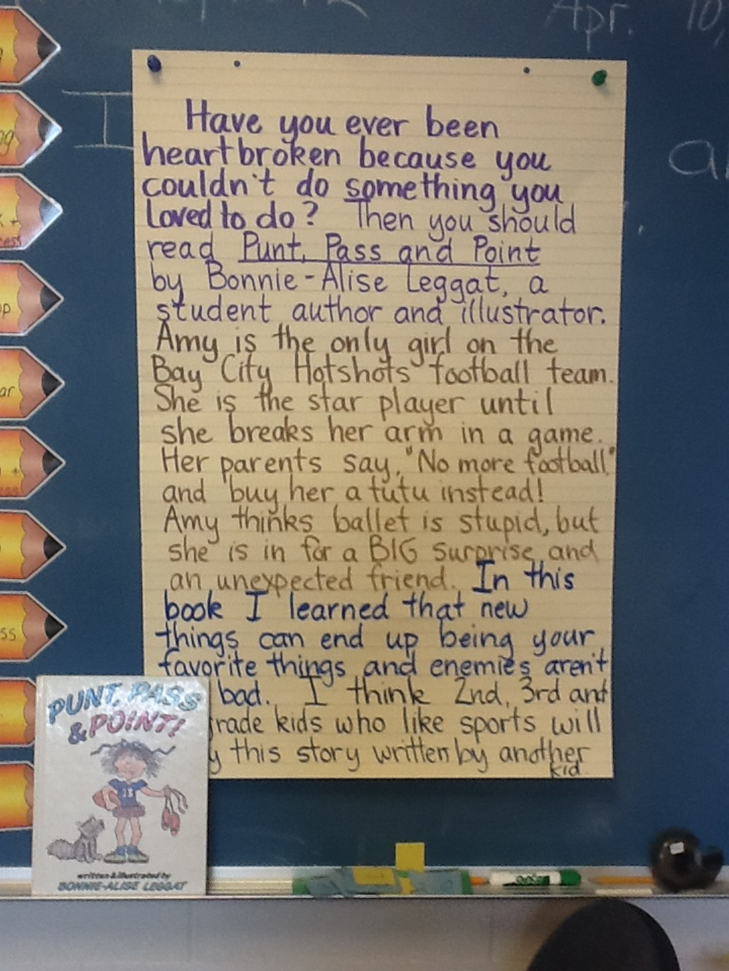 Apr. 10,
I
Have you ever been
heartbroken because you
couldn't do something you
loved to do? Then you should
read Punt, Pass and Point
by Bonnie-Alise Leggat, a
student author and illustrator.
Amy is the only girl on the
Bay City Hotshots football team.
She is the star player until
she breaks her arm in a game.
Her parents say, "No more football"
and buy her a tutu instead!
Amy thinks ballet is stupid, but
she is in for a BIG surprise and
an unexpected friend. In this
book I learned that new
things can end up being your
favorite things and enemies aren't
bad. I think 2nd, 3rd and
grade kids who like sports will
this story written by another
kid
PUNT, PASS
& POINT!
written & illustrated by
BONNIE-ALISE LEGGAT